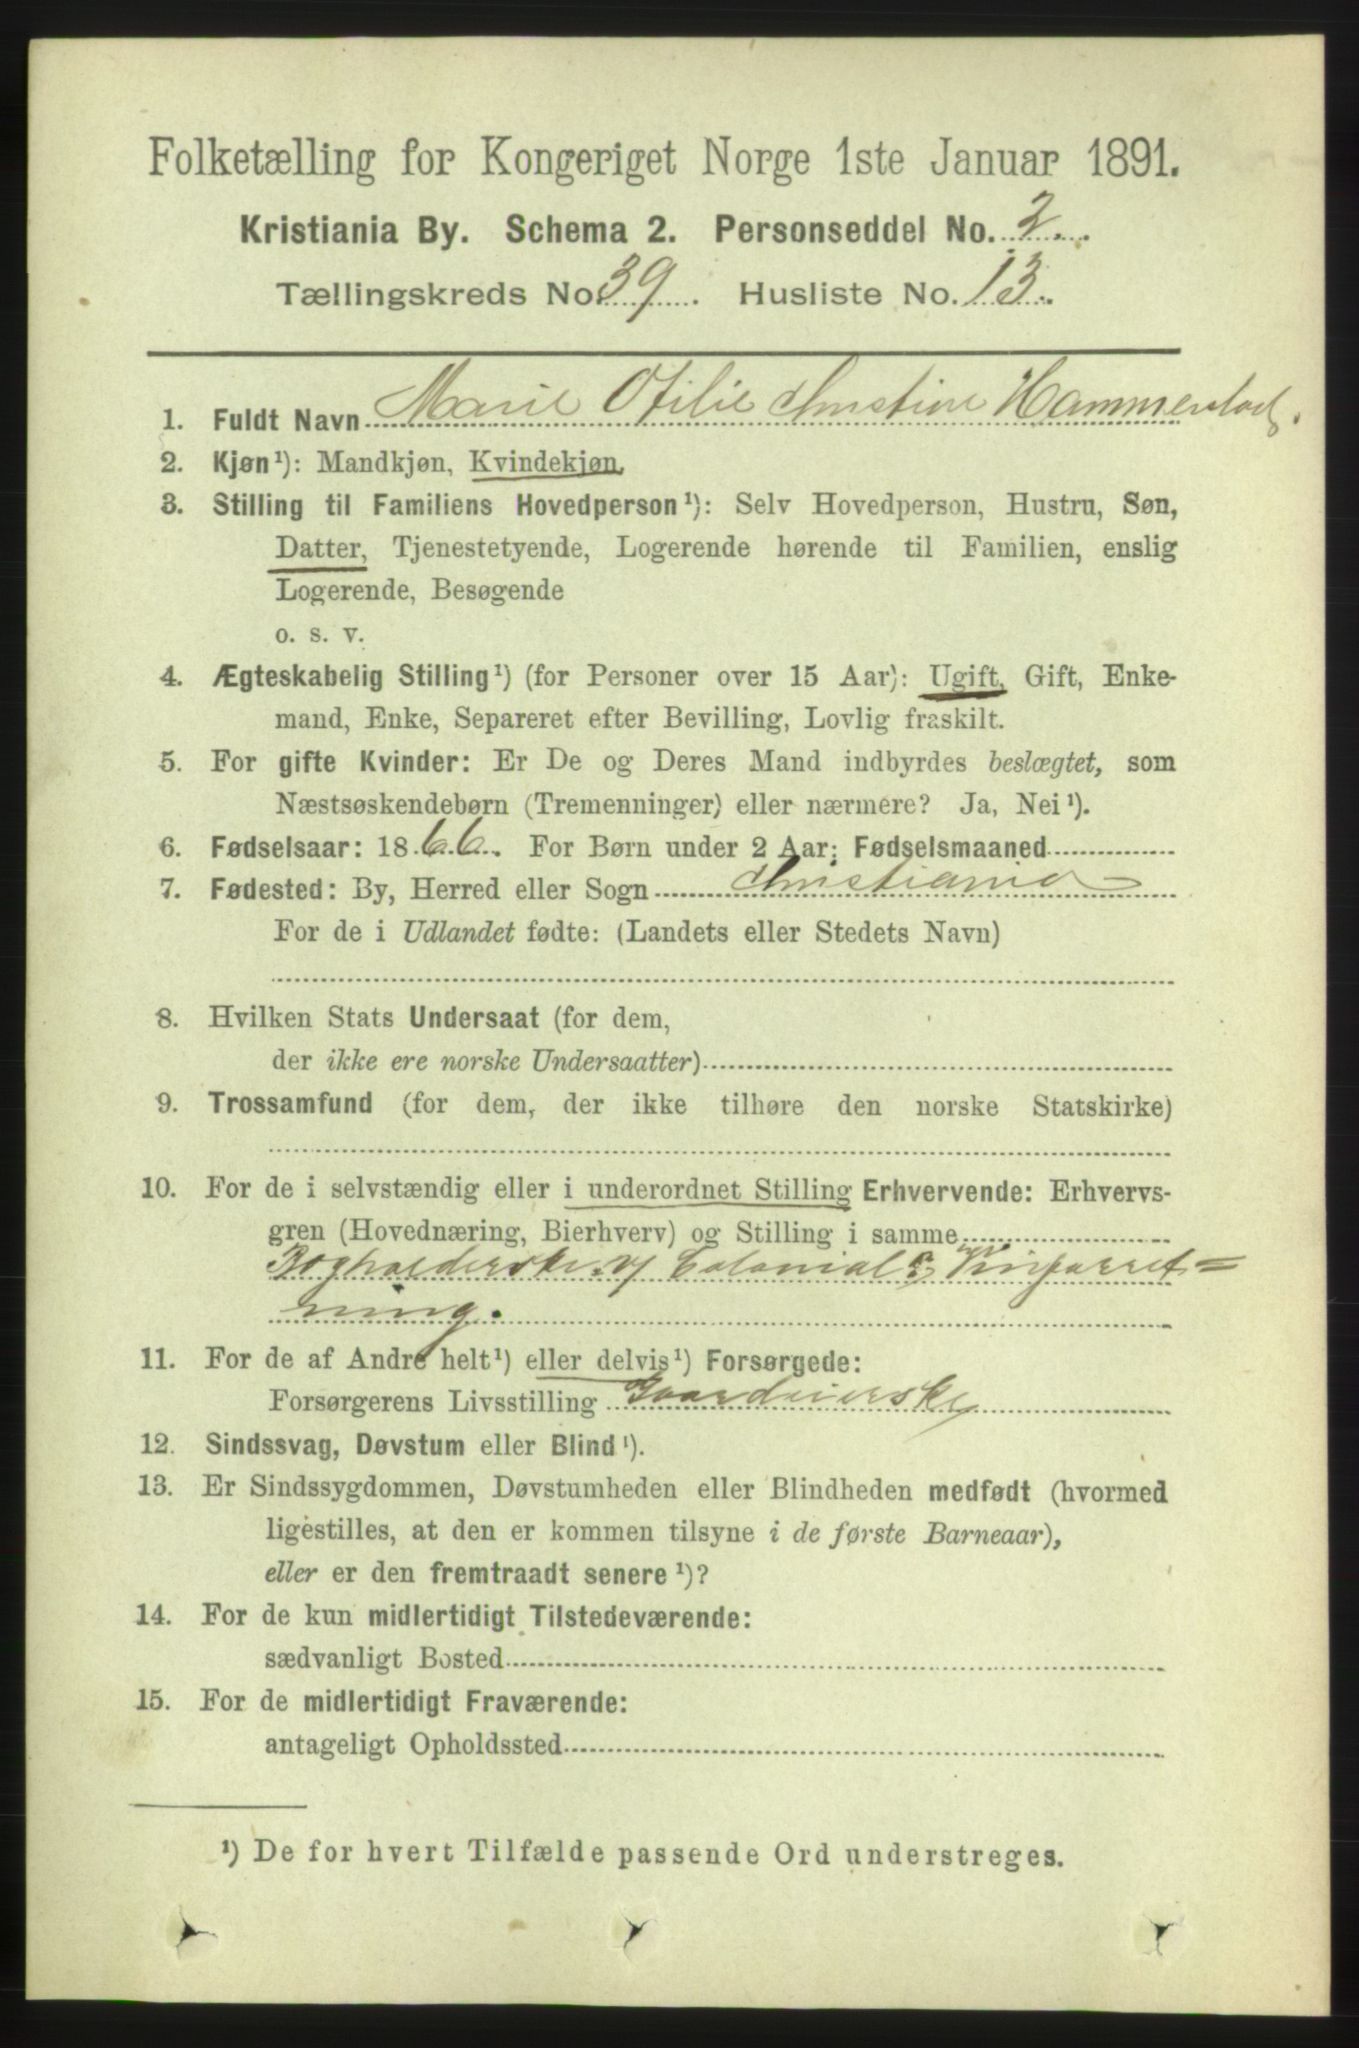 Folketælling for Kongeriget Norge 1ste Januar 1891.
Kristiania By. Schema 2. Personseddel No. 2.
Tællingskreds No. 39. Husliste No. 13.
1. Fuldt Navn Marie Otilie Christine Hammerstad.
2. Kjøn¹): Mandkjøn, Kvindekjøn.
3. Stilling til Familiens Hovedperson¹): Selv Hovedperson, Hustru, Søn,
Datter, Tjenestetyende, Logerende hørende til Familien, enslig
Logerende, Besøgende
o. s. v.
4. Ægteskabelig Stilling¹) (for Personer over 15 Aar): Ugift, Gift, Enke-
mand, Enke, Separeret efter Bevilling, Lovlig fraskilt.
5. For gifte Kvinder: Er De og Deres Mand indbyrdes beslægtet, som
Næstsøskendebørn (Tremenninger) eller nærmere? Ja, Nei¹).
6. Fødselsaar: 1866. For Børn under 2 Aar: Fødselsmaaned
7. Fødested: By, Herred eller Sogn Christiania
For de i Udlandet fødte: (Landets eller Stedets Navn)
8. Hvilken Stats Undersaat (for dem,
der ikke ere norske Undersaatter)
9. Trossamfund (for dem, der ikke tilhøre den norske Statskirke)
10. For de i selvstændig eller i underordnet Stilling Erhvervende: Erhvervs-
gren (Hovednæring, Bierhverv) og Stilling i samme
Bogholderske v/ Colonial Vinforret=
ning.
11. For de af Andre helt¹) eller delvis¹) Forsørgede:
Forsørgerens Livsstilling Gaardeierske
12. Sindssvag, Døvstum eller Blind¹).
13. Er Sindssygdommen, Døvstumheden eller Blindheden medfødt (hvormed
ligestilles, at den er kommen tilsyne i de første Barneaar),
eller er den fremtraadt senere¹)?
14. For de kun midlertidigt Tilstedeværende:
sædvanligt Bosted
15. For de midlertidigt Fraværende:
antageligt Opholdssted
¹) De for hvert Tilfælde passende Ord understreges.